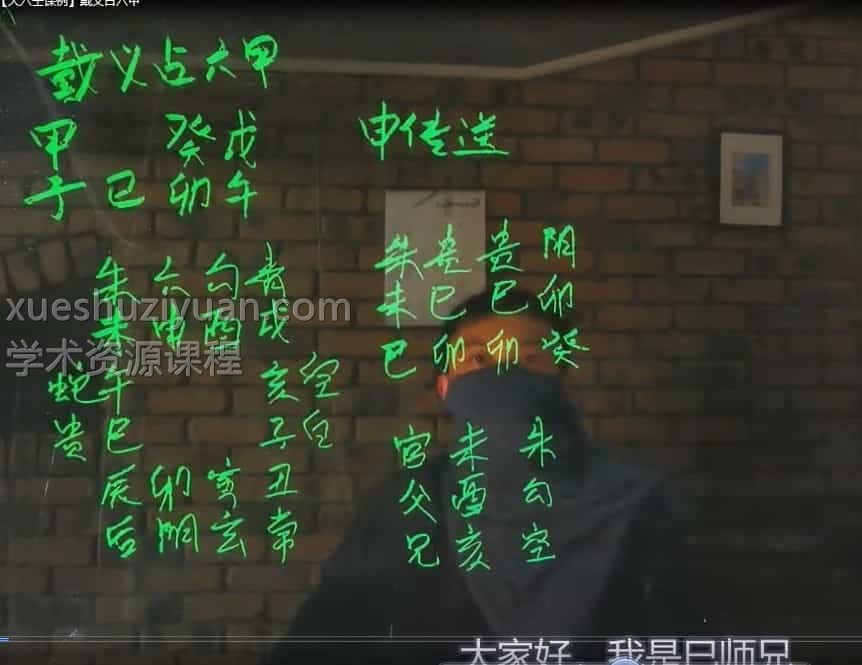 【大六壬课例】戴义占六甲
戴义占六甲
甲 癸戊
子巳卯午
申传送
朱六勾青
未申酉戌
蛇午 亥空
贵巳 子白
辰卯寅丑
后阴玄常
朱贵贵阴
未巳巳卯
巳卯卯癸
官未朱
父酉勾
兄亥空
xueshuziyuan.com
学术资源课程
大家好，我是巳师兄